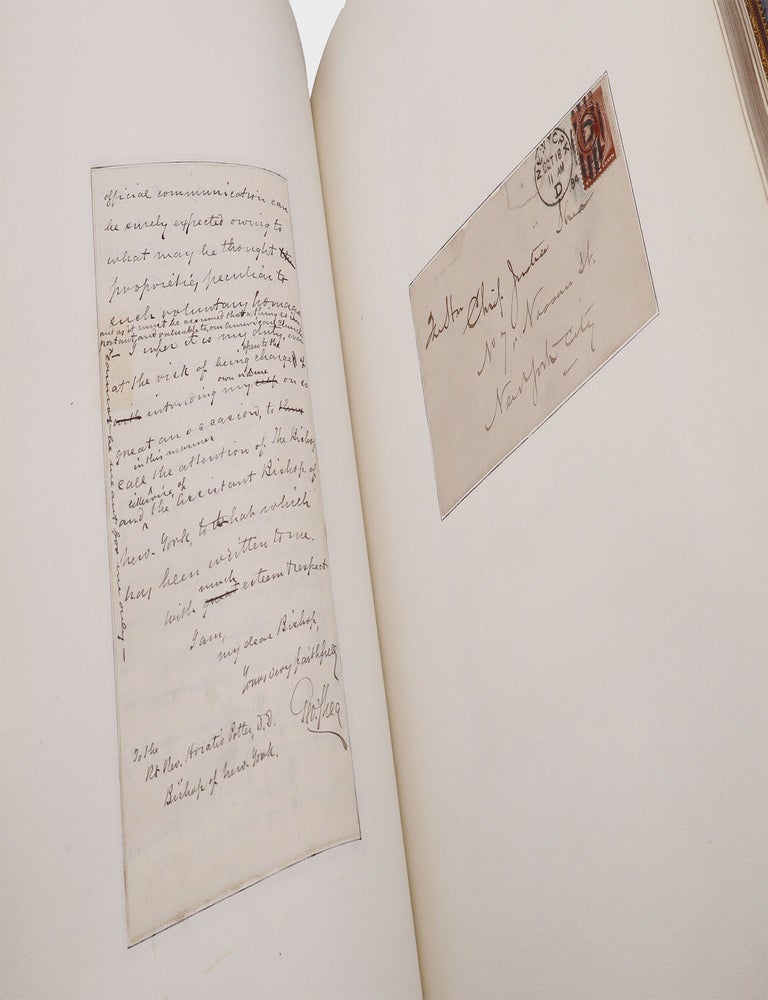 official communication can
be surely expected owing to
what may be thought
proprieties peculiar to
such voluntary homage
and as it must be assumed that a thing as im
portant, and valuable to our american Church
cannot be meant for me only —
— I infer it is my duty, even
open to the
at the risk of being charge of
own name
with intruding my self on so
great an occasion, to
in this manner
call the attention of The Bishop
and the Assistant Bishop of
New-York, to that which
has been written to me.
much
with great esteem & respect
I am,
my dear Bishop,
Yours very faithfully
Geo: Shea
To the
Rt Rev. Horatio Potter, D.D.
Bishop of New-York.
NEW YORK
OCT 18
11 AM
84
D
Chief Justice Shea
No 7 Nassau St.
New York City